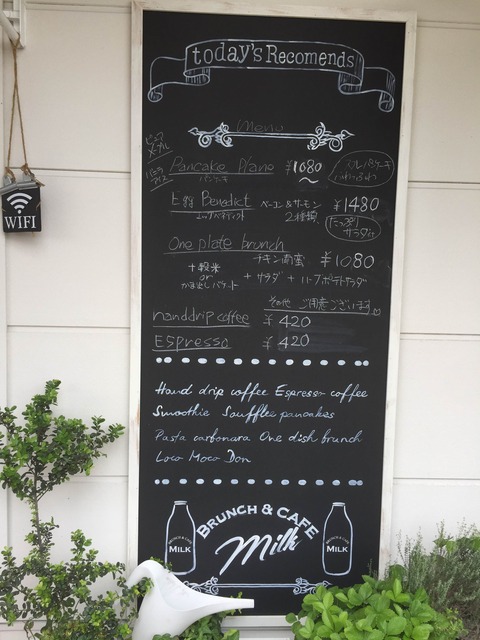 today's Recomends
Menu
Pancake Plane ¥1080〜
パンケーキ
WIFI
Egg Benedict ベーコン&サーモン ¥1480
エッグベネディクト 2種類
たっぷり
サラダ付
One plate brunch
チキン南蛮 ¥1080
十穀米 + サラダ + ハーフポテトサラダ
or
かま出しバケット
その他 ご用意ございます
handdrip coffee ¥420
Espresso ¥420
Hand drip coffee Espresso coffee
Smoothie Soufflee pancakes
Pasta carbonara One dish brunch
Loco Moco Don
BRUNCH & CAFE
Milk
BRUNCH & CAFE
MILK
BRUNCH & CAFE
MILK